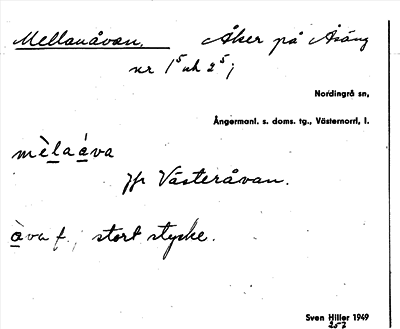 Mellanåvan. Åker på Åsäng
nr 1⁵ och 2⁵;
Nordingrå sn,
Ångermanl. s. doms. tg., Västernorrl, l.
mèlaáva
Jfr Västeråvan.
àva f., stort stycke.
Sven Hiller 1949
252